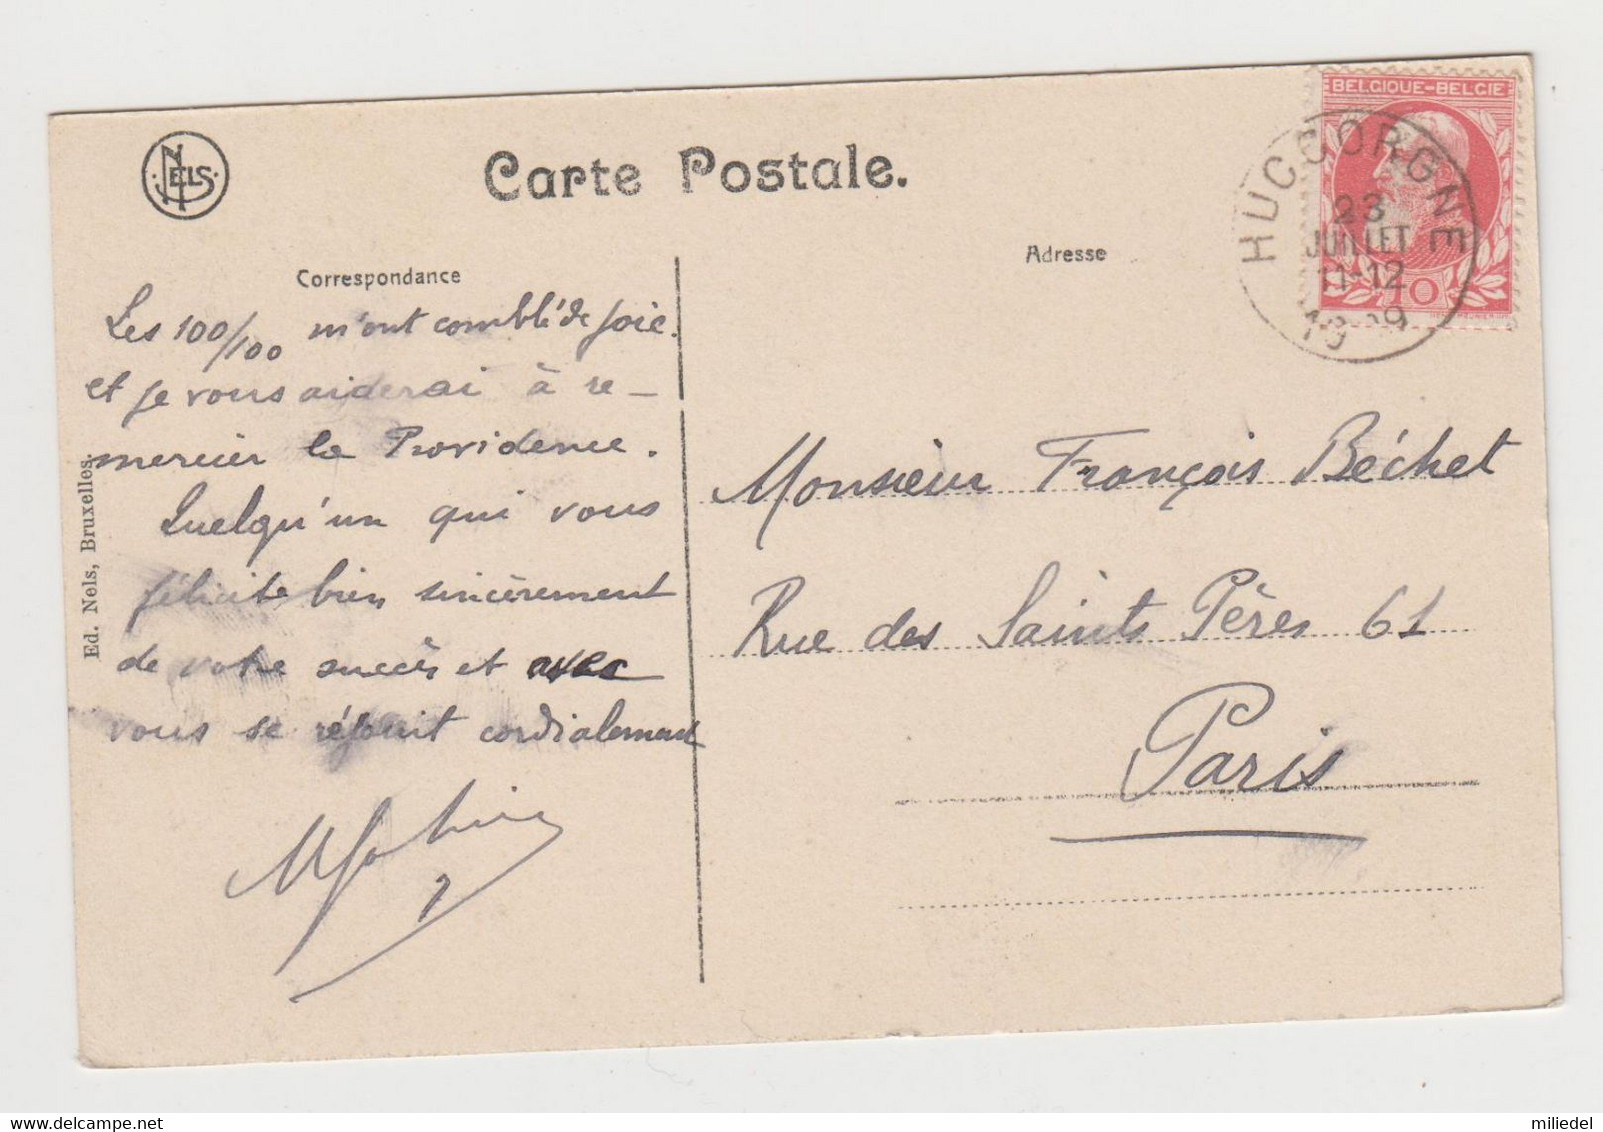 NELS
Carte Postale.
BELGIQUE-BELGIE
HUCCORGNE
23
JUILLET
11-12
10
Correspondance
Adresse
Les 100/100 m'ont comblé de joie.
et je vous aiderai à re-
mercier la Providence.
Quelqu'un qui vous
félicite bien sincèrement
de votre succès et avec
vous se réjouit cordialement
Monsieur François Béchet
Rue des Saints Pères 61
Paris
Ed. Nels, Bruxelles.
miliedel